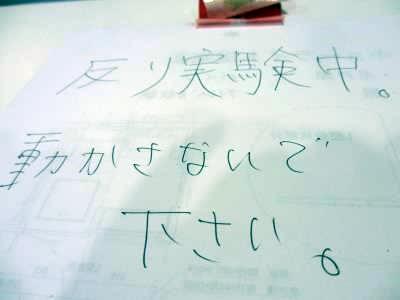 反り実験中。
動かさないで
下さい。